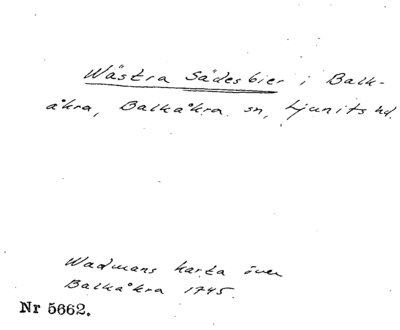 Wästra Sädesbier i Balk-
åkra, Balkåkra sn, Ljunits hd.
Wadmans karta över
Balkåkra 1745.
Nr 5662.